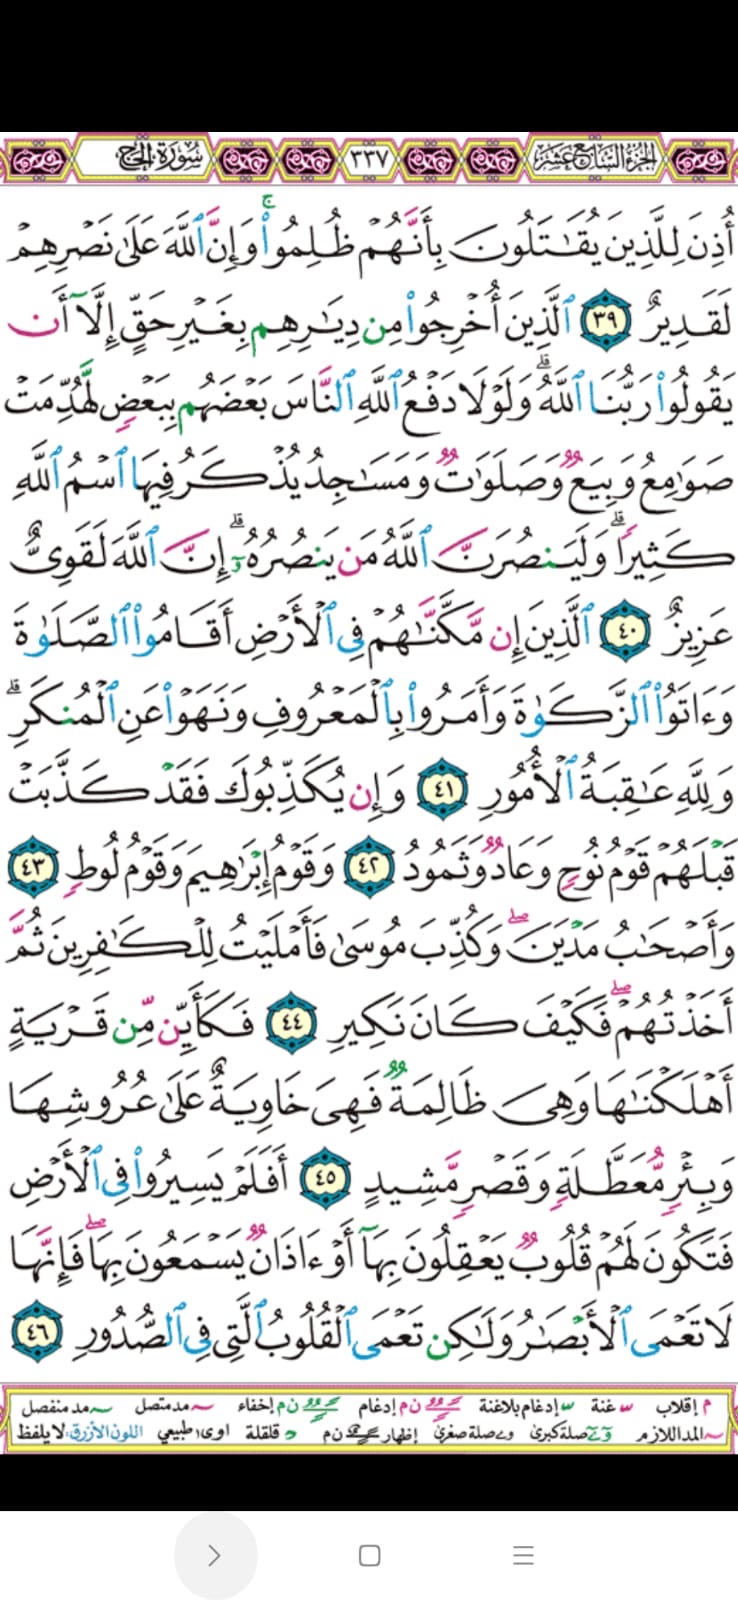 الجزء السابع عشر ٣٣٧ سورة الحج
أُذِنَ لِلَّذِينَ يُقَٰتَلُونَ بِأَنَّهُمْ ظُلِمُوا۟ ۚ وَإِنَّ ٱللَّهَ عَلَىٰ نَصْرِهِمْ
لَقَدِيرٌ ٣٩ ٱلَّذِينَ أُخْرِجُوا۟ مِن دِيَٰرِهِم بِغَيْرِ حَقٍّ إِلَّآ أَن
يَقُولُوا۟ رَبُّنَا ٱللَّهُ ۗ وَلَوْلَا دَفْعُ ٱللَّهِ ٱلنَّاسَ بَعْضَهُم بِبَعْضٍ لَّهُدِّمَتْ
صَوَٰمِعُ وَبِيَعٌ وَصَلَوَٰتٌ وَمَسَٰجِدُ يُذْكَرُ فِيهَا ٱسْمُ ٱللَّهِ
كَثِيرًا ۗ وَلَيَنصُرَنَّ ٱللَّهُ مَن يَنصُرُهُۥٓ ۗ إِنَّ ٱللَّهَ لَقَوِىٌّ
عَزِيزٌ ٤٠ ٱلَّذِينَ إِن مَّكَّنَّٰهُمْ فِى ٱلْأَرْضِ أَقَامُوا۟ ٱلصَّلَوٰةَ
وَءَاتَوُا۟ ٱلزَّكَوٰةَ وَأَمَرُوا۟ بِٱلْمَعْرُوفِ وَنَهَوْا۟ عَنِ ٱلْمُنكَرِ ۗ
وَلِلَّهِ عَٰقِبَةُ ٱلْأُمُورِ ٤١ وَإِن يُكَذِّبُوكَ فَقَدْ كَذَّبَتْ
قَبْلَهُمْ قَوْمُ نُوحٍ وَعَادٌ وَثَمُودُ ٤٢ وَقَوْمُ إِبْرَٰهِيمَ وَقَوْمُ لُوطٍ ٤٣
وَأَصْحَٰبُ مَدْيَنَ ۖ وَكُذِّبَ مُوسَىٰ فَأَمْلَيْتُ لِلْكَٰفِرِينَ ثُمَّ
أَخَذْتُهُمْ ۖ فَكَيْفَ كَانَ نَكِيرِ ٤٤ فَكَأَيِّن مِّن قَرْيَةٍ
أَهْلَكْنَٰهَا وَهِىَ ظَالِمَةٌ فَهِىَ خَاوِيَةٌ عَلَىٰ عُرُوشِهَا
وَبِئْرٍ مُّعَطَّلَةٍ وَقَصْرٍ مَّشِيدٍ ٤٥ أَفَلَمْ يَسِيرُوا۟ فِى ٱلْأَرْضِ
فَتَكُونَ لَهُمْ قُلُوبٌ يَعْقِلُونَ بِهَآ أَوْ ءَاذَانٌ يَسْمَعُونَ بِهَا ۖ فَإِنَّهَا
لَا تَعْمَى ٱلْأَبْصَٰرُ وَلَٰكِن تَعْمَى ٱلْقُلُوبُ ٱلَّتِى فِى ٱلصُّدُورِ ٤٦
م إقلاب غنة إدغام بلاغنة ن م إدغام ن م إخفاء مد متصل مد منفصل
المد اللازم صلة كبرى صلة صغرى إظهار ن م قلقلة اوى طبيعي اللون الأزرق: لا يلفظ